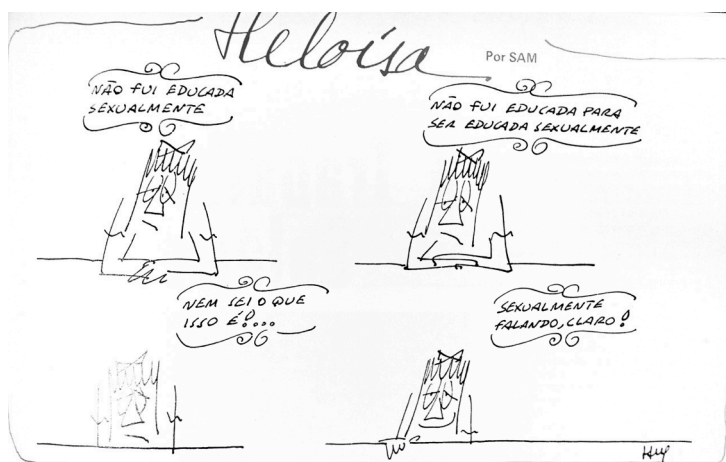 Heloísa
Por SAM
NÃO FUI EDUCADA
SEXUALMENTE
NÃO FUI EDUCADA PARA
SER EDUCADA SEXUALMENTE
NEM SEI O QUE
ISSO É!....
SEXUALMENTE
FALANDO, CLARO!